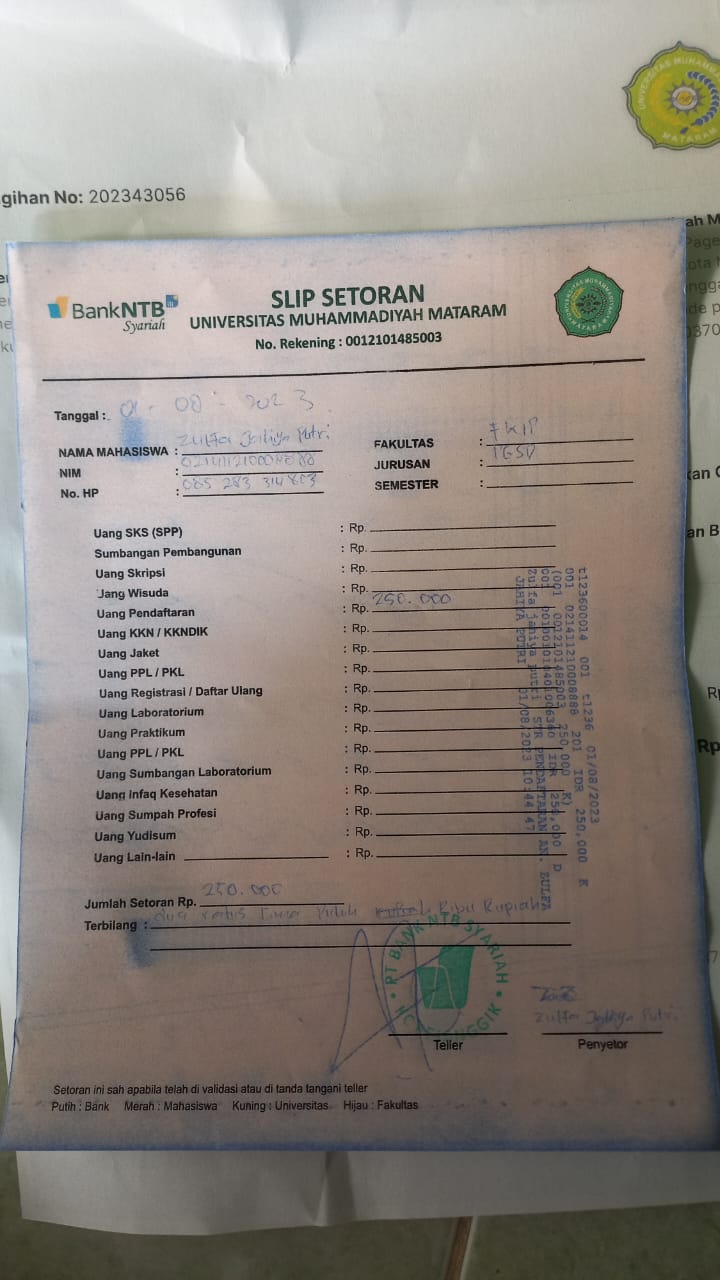 UNIVERSITAS MUHAMM
MATARAM
gihan No: 202343056
ah M
Page
ota
ngga
de p
0370
BankNTB
Syariah
SLIP SETORAN
UNIVERSITAS MUHAMMADIYAH MATARAM
No. Rekening : 0012101485003
Tanggal : 01 - 08 - 2023
NAMA MAHASISWA : Zulfa Jahiya Putri
NIM :
No. HP : 085 283 314 803
FAKULTAS : FKIP
JURUSAN : PGSD
SEMESTER :
kan
an B
Uang SKS (SPP) : Rp.
Sumbangan Pembangunan : Rp.
Uang Skripsi : Rp.
Uang Wisuda : Rp.
Uang Pendaftaran : Rp. 250.000
Uang KKN / KKNDIK : Rp.
Uang Jaket : Rp.
Uang PPL / PKL : Rp.
Uang Registrasi / Daftar Ulang : Rp.
Uang Laboratorium : Rp.
Uang Praktikum : Rp.
Uang PPL / PKL : Rp.
Uang Sumbangan Laboratorium : Rp.
Uang Infaq Kesehatan : Rp.
Uang Sumpah Profesi : Rp.
Uang Yudisum : Rp.
Uang Lain-lain : Rp.
Rp
Rp
t123600014 001 t1236 01/08/2023
001 021411210008888 201 IDR 250,000 K
(001 0012101485003 250,000 K)
IDR 250,000 D
zulfa jahiya putri STR PENDAFTARAN AN. ZULFA
JAHIYA PUTRI 01/08/2023 10:44:47
Jumlah Setoran Rp. 250.000
Terbilang : dua ratus Lima Puluh Ribu Rupiah
PT BANK NTB SYARIAH
Teller
Zulfa Jahiya Putri
Penyetor
Setoran ini sah apabila telah di validasi atau di tanda tangani teller
Putih : Bank Merah : Mahasiswa Kuning : Universitas Hijau : Fakultas